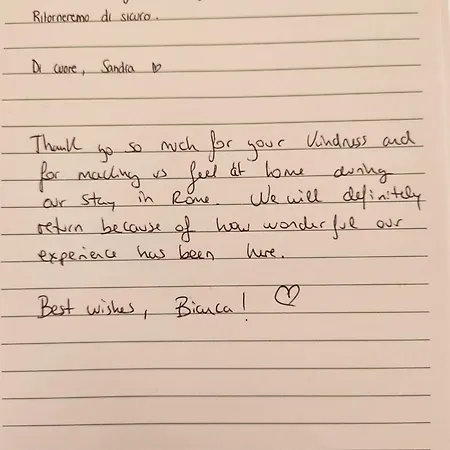 Ritorneremo di sicuro.
Di cuore, Sandra ♡
Thank yo so much for your kindness and
for making us feel at home during
our stay in Rome. We will definitely
return because of how wonderful our
experience has been here.
Best wishes, Bianca! ♡